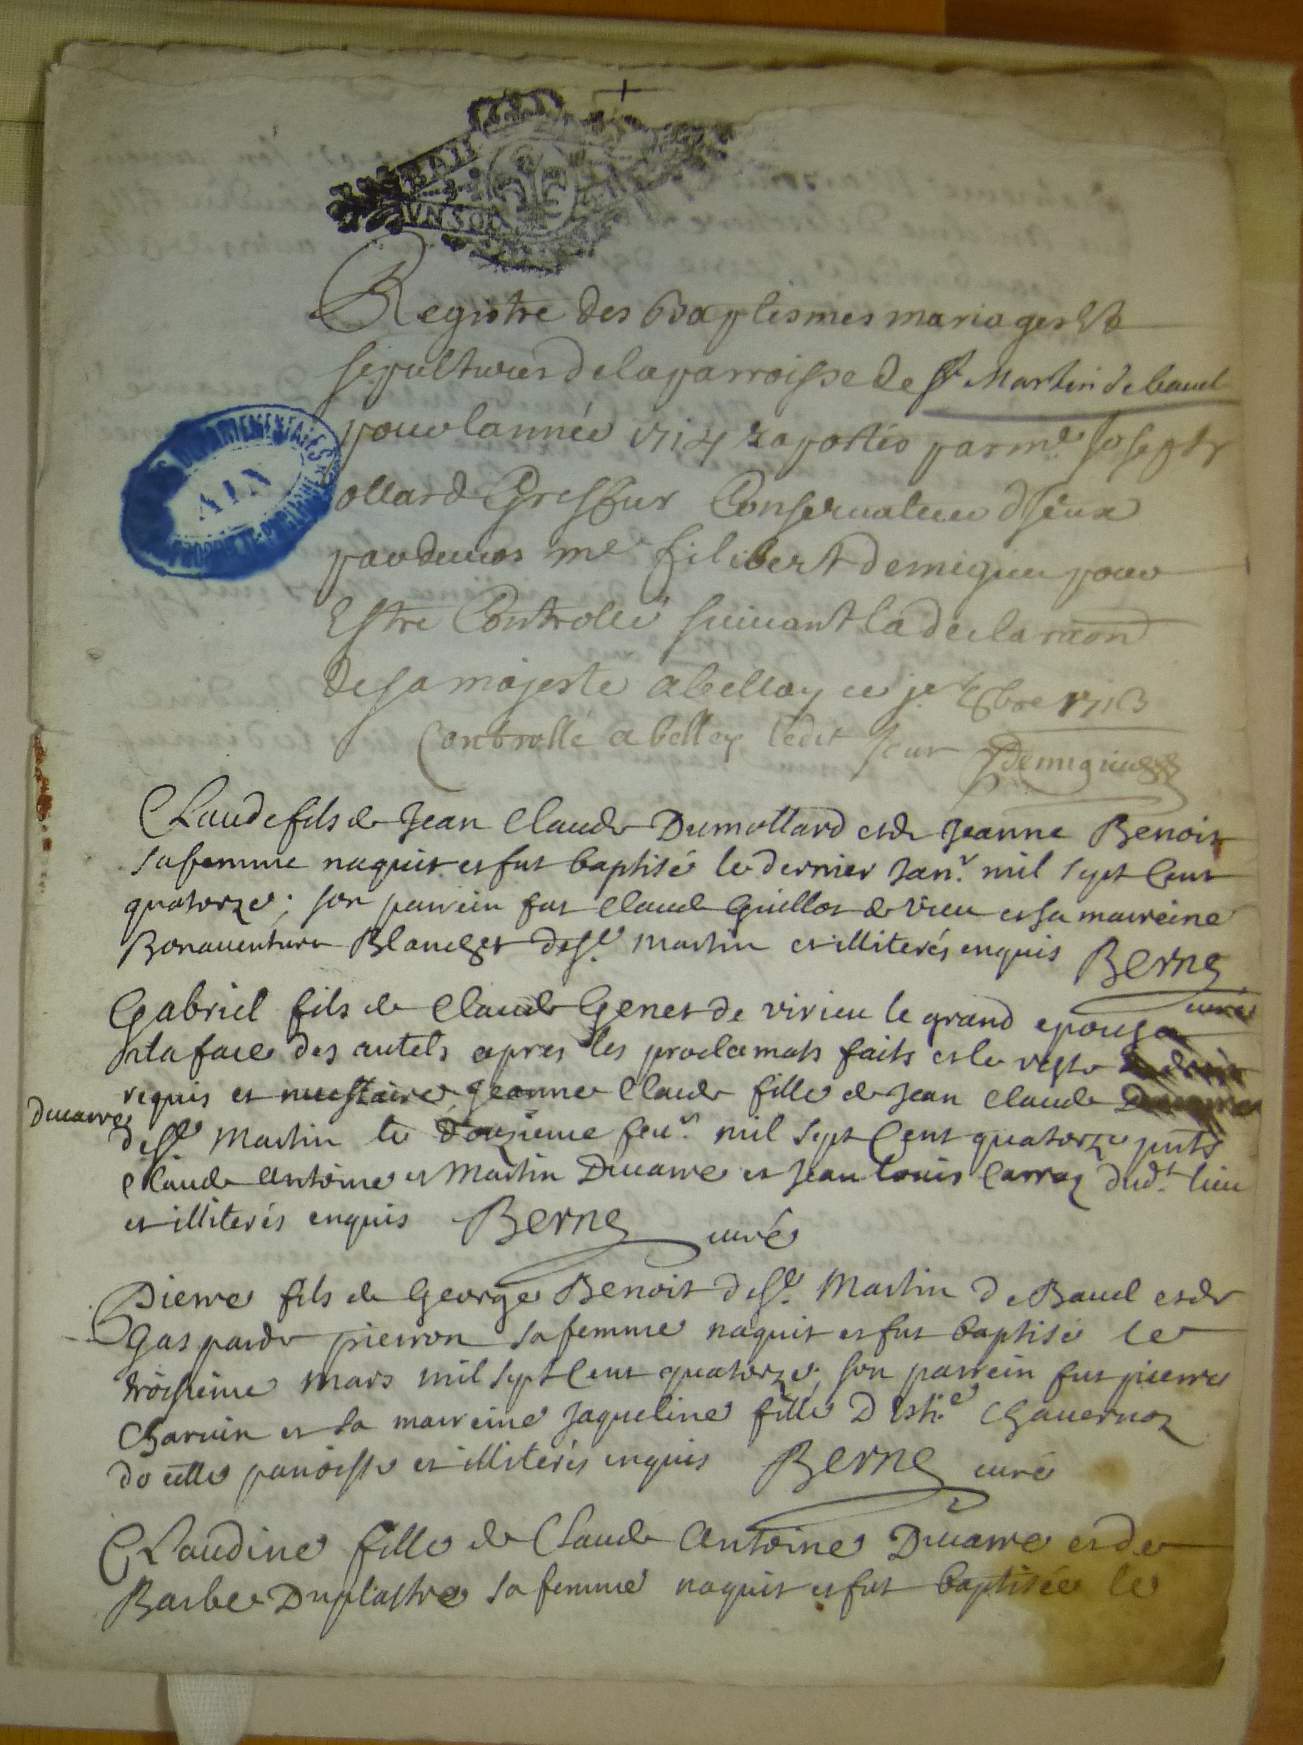 VN SOL
ARCHIVES DEPARTEMENTALES
AIN
Registre des Baptismes mariages Et
sepultures de la parroisse de St Martin de bauel
pour lannée 1714 raportés par me Joseph
ollard Greffier Conseruateur d'Iceux
pardeuers me filibert demigieu pour
Estre Controllé suiuant la declaraon
de sa majesté a belley ce je Xbre 1713
Controllé a belley ledit Jour Demigieu
Claude fils de Jean Claude Dumollard et de Jeanne Benoit
sa femme naquit et fut baptisé le dernier Janr. mil sept Cent
quatorze; son parrein fut Claude Guillot de vieu et sa marreine
Bonauenture Blanchet de St. Martin et illiterés enquis Berne
curé
Gabriel fils de Claude Genet de virieu le grand epousa
en la face des autels apres les proclamats faits et le reste
requis et necessaire Jeanne Claude fille de Jean Claude
Ducarre
de St Martin le douzieme feur. mil sept Cent quatorze pnts
Claude Antoine et Martin Ducarre et Jean Louis Carraz dud. lieu
et illiterés enquis Berne curé
Pierre fils de George Benoit de St. Martin de Bauel et de
Gasparde pierron sa femme naquit et fut baptisé le
troisieme mars mil sept Cent quatorze; son parrein fut pierre
Charuin et sa marreine Jaqueline fille D Este Chauernoz
de cette parroisse et illiterés enquis Berne curé
Claudine fille de Claude Antoine Ducarre et de
Barbe Duplastre sa femme naquit et fut baptisée le